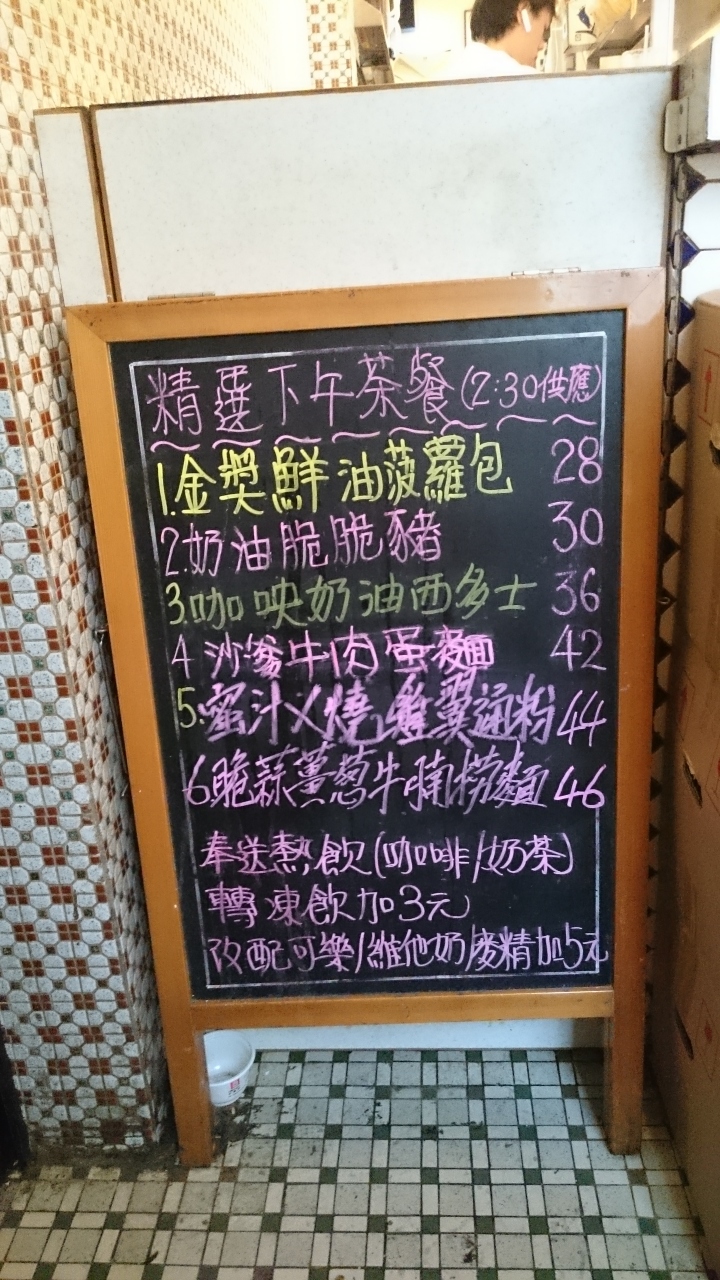 精選下午茶餐(2:30供應)
1.金獎鮮油菠蘿包 28
2.奶油脆脆豬 30
3.咖央奶油西多士 36
4 沙嗲牛肉蛋麵 42
5.蜜汁乂燒雞翼通粉 44
6.脆蒜薑葱牛腩撈麵 46
奉送熱飲(咖啡/奶茶)
轉凍飲加3元
改配可樂/維他奶/麥精加5元